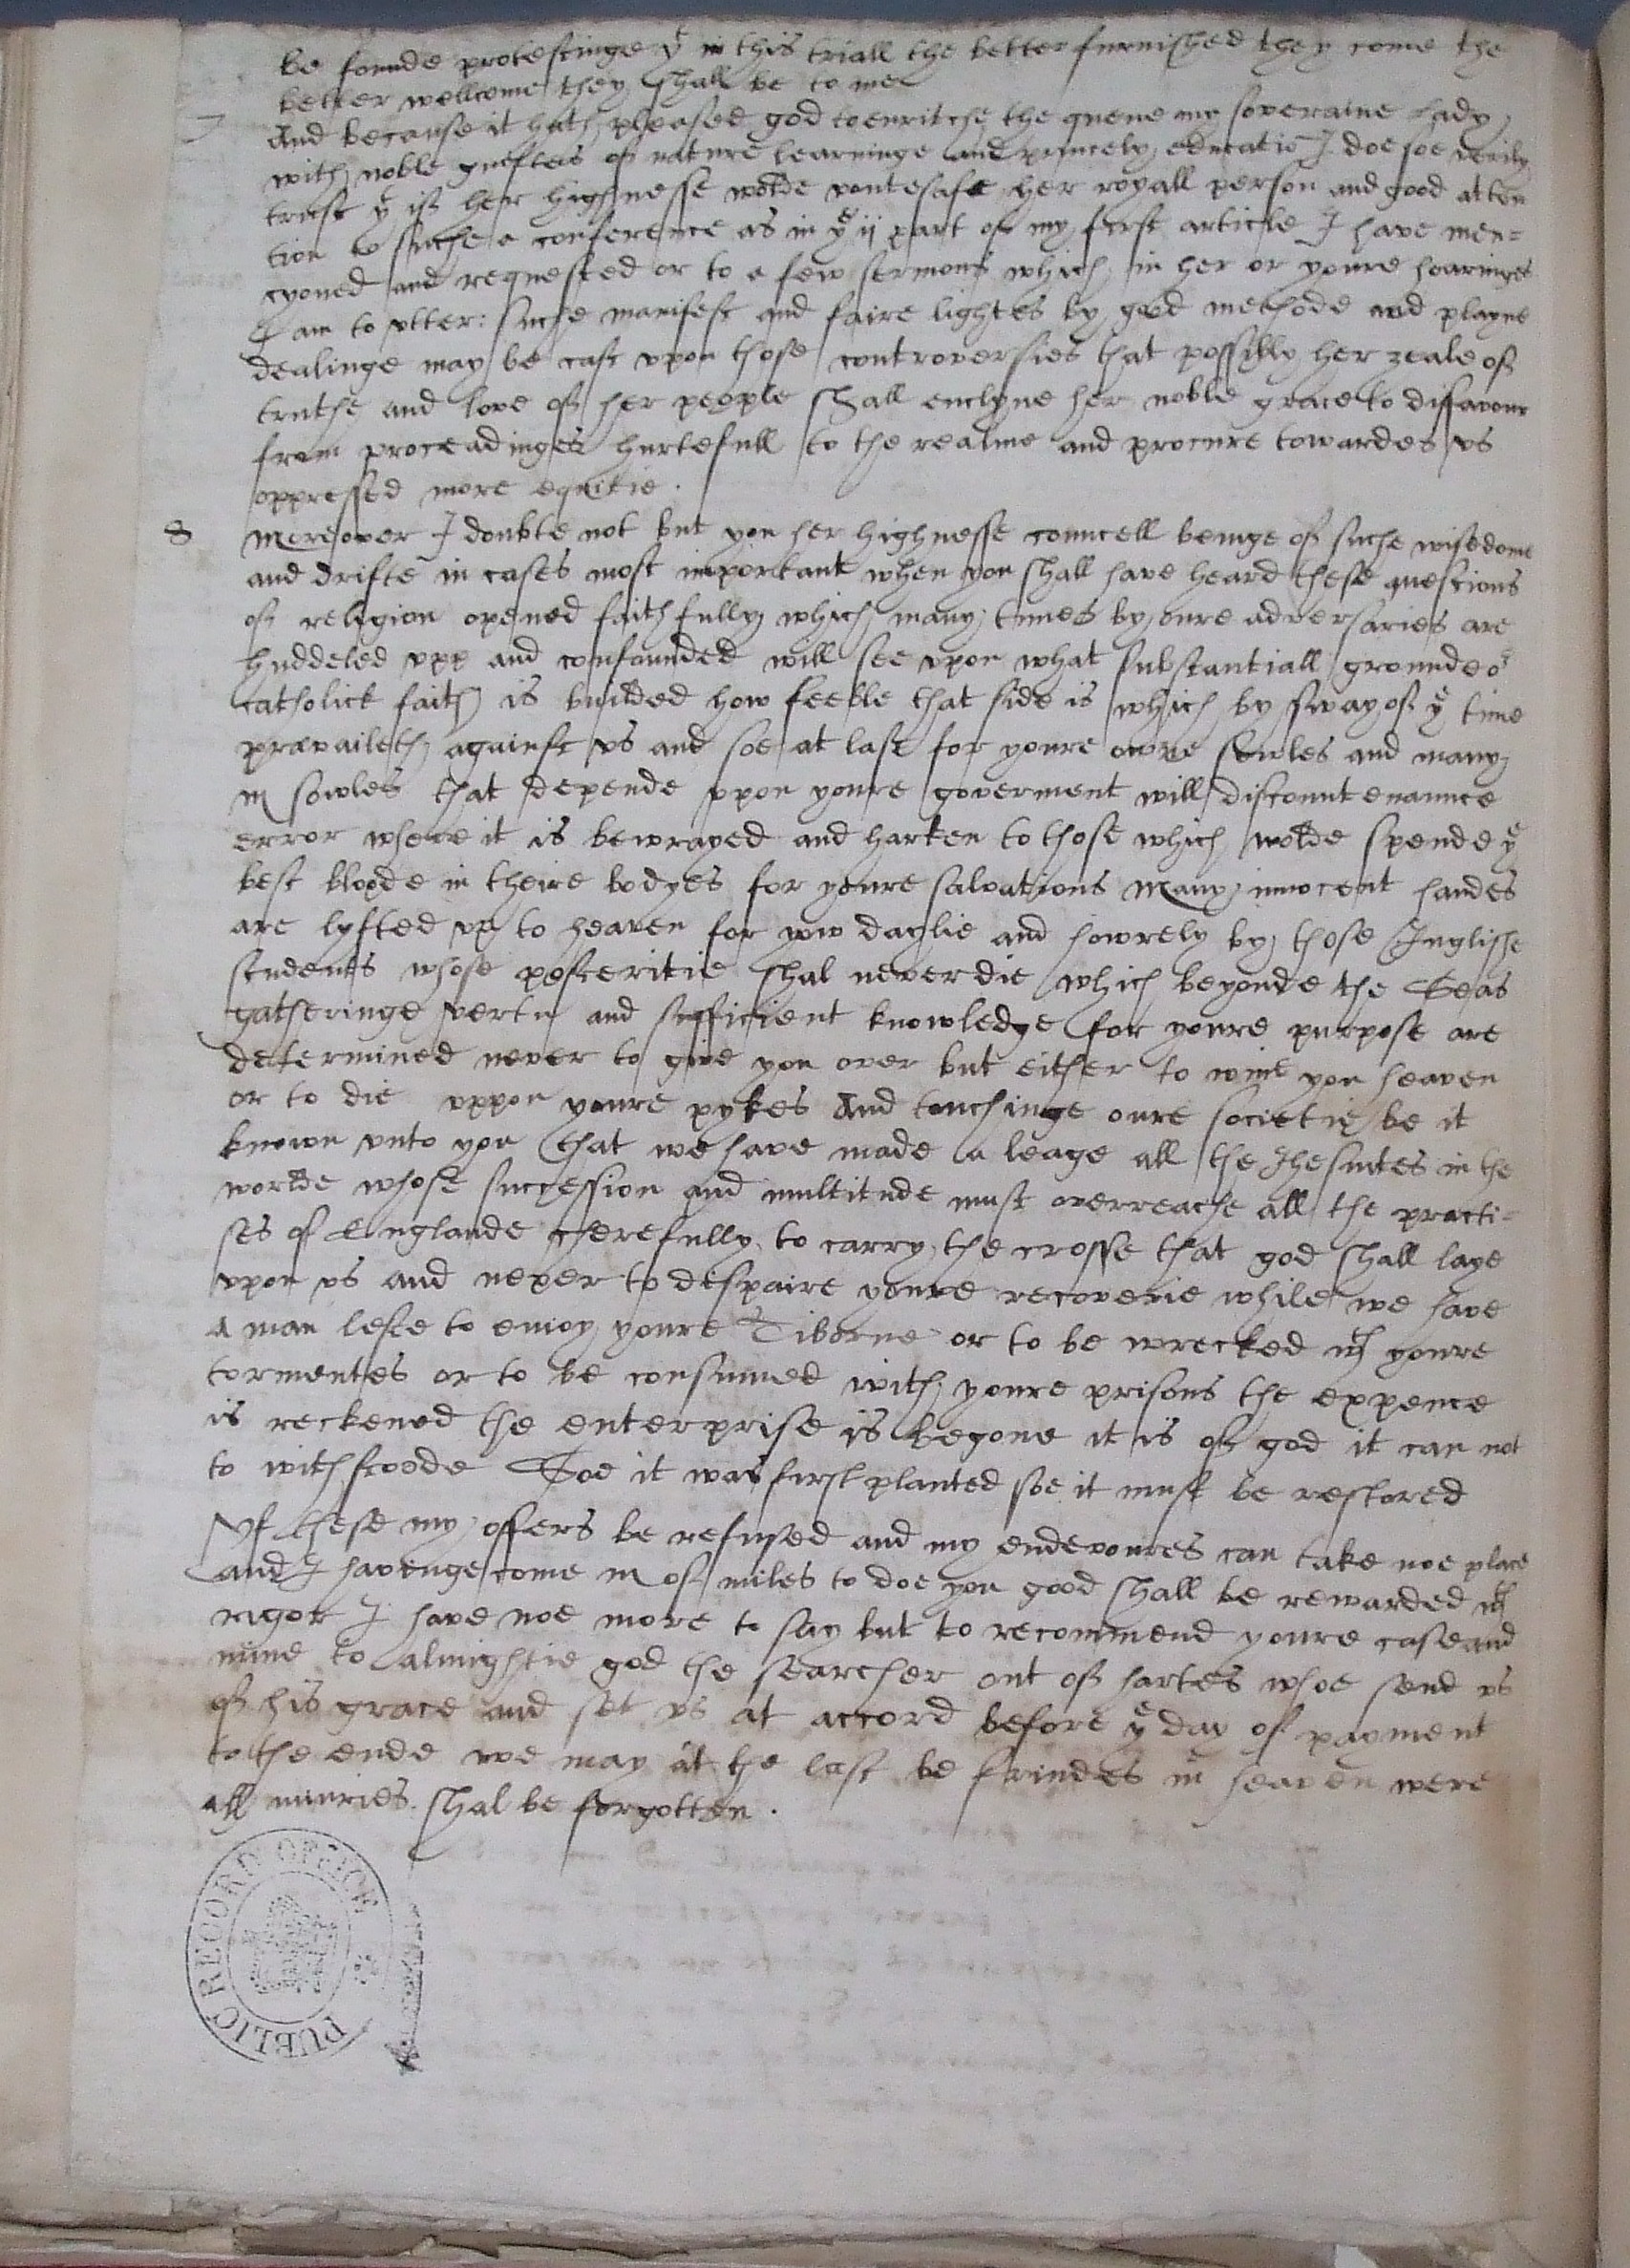 be founde protestinge yt in this triall the better furnished they come the
better wellcome they shall be to me
7 And because it hath pleased god to enritche the quene my soveraine Lady
with noble gueftes of nature learninge and princely educatiō I doe soe verily
trust yt if her highnesse wolde voutesafe her royall person and good atten
tion to suche a conference as in ye ij part of my first article I have men=
cyoned and requested or to a few sermons which in her or youre hearinges
I am to utter: suche manifest and faire lightes by good methode and playne
dealinge may be cast upon those controversies that possibly her zeale of
truthe and love of her people shall enclyne her noble grace to disfavour
from proceadinges hurtefull to the realme and procure towardes us
oppressed more equitie.
8 Moreover I doubte not but you her highnesse councell beinge of suche wisedome
and drifte in cases most important when you shall have heard these questions
of religion opened faithfully which many times by oure adversaries are
huddeled upp and confounded will see upon what substantiall grounde or
catholick faith is builded how feeble that side is which by sway of ye time
prævaileth against us and soe at last for youre owne sowles and many
m sowles that depende upon youre goverment will discountenaunce
error where it is bewrayed and harken to those which wolde spende ye
best bloode in theire bodyes for youre salvations Many innocent handes
are lyfted up to heaven for yow daylie and howrely by those Inglishe
students whose posteritie shal never die which beyonde the Seas
gatheringe vertu and sufficient knowledge for youre purpose are
determined never to give you over but either to wine you heaven
or to die uppon youre pykes And touchinge oure societie be it
known unto you that we have made a leage all the Jhesuites in the
worlde whose succession and multitude must overreache all the practi=
ses of Englande cherefully to carry the crosse that god shall laye
upon us and never to despaire youre recoverie while we have
a man lefte to enioy youre Tiborne or to be wrecked wth youre
tormentes or to be consumed with youre prisons the expence
is reckened the enterprise is begone it is of god it can not
to withstoode Soe it was first planted soe it must be restored
Yf these my offers be refused and my endevoures can take noe place
and I havenge come m of miles to doe you good shall be rewarded wth
rigor I have noe more to say but to recommend youre case and
mine to almightie god the searcher out of hartes whoe send us
of his grace and set us at accord before ye day of payment
to the ende we may at the last be frindes in heaven were
all iniuries shal be forgotten.
PUBLIC RECORD OFFICE